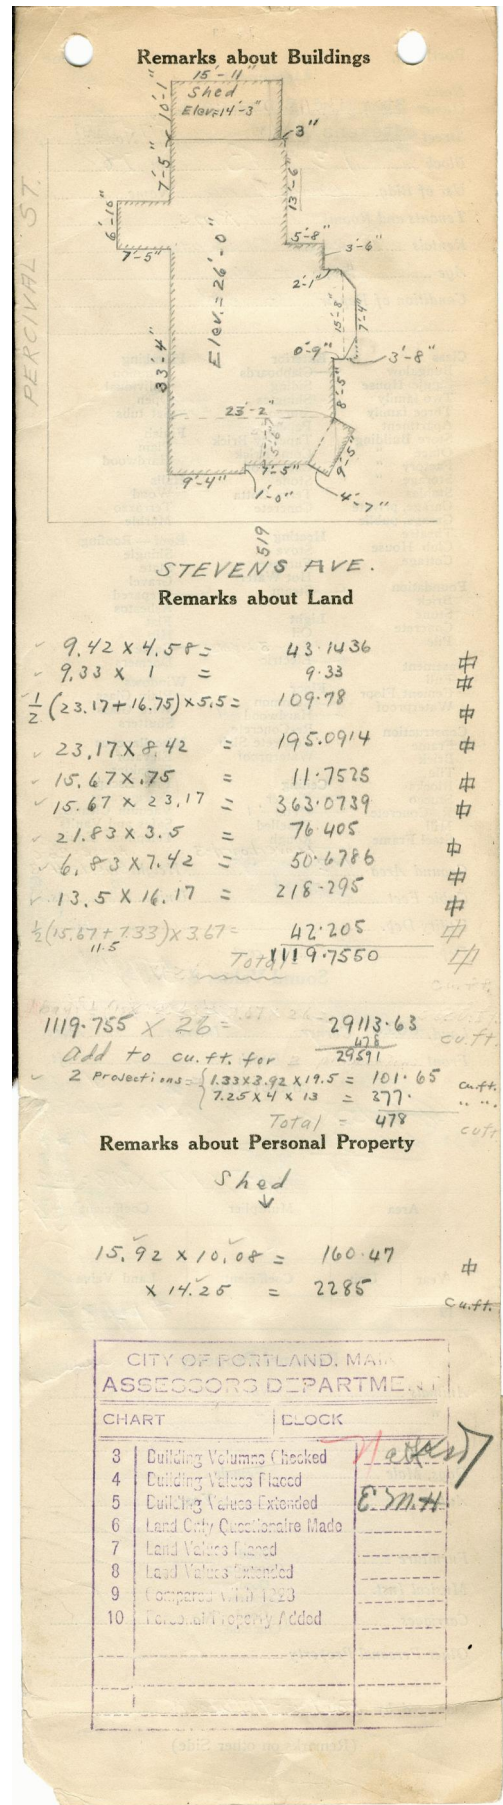 Remarks about Buildings
15'-11"
Shed
Elev=14'-3"
10'-1"
3"
7'-5"
13'-6"
6'-10"
7'-5"
5'-8"
3'-6"
2'-1"
PERCIVAL ST.
Elev.=26'-0"
15'-8"
7'-4"
33'-4"
0'-9"
3'-8"
8'-5"
23'-2"
5'-6"
9'-5"
9'-4"
7'-5"
1'-0"
4'-7"
519
STEVENS AVE.
Remarks about Land
9.42 x 4.58 = 43.1436
9.33 x 1 = 9.33
1/2 (23.17 + 16.75) x 5.5 = 109.78
23.17 x 8.42 = 195.0914
15.67 x .75 = 11.7525
15.67 x 23.17 = 363.0739
21.83 x 3.5 = 76.405
6.83 x 7.42 = 50.6786
13.5 x 16.17 = 218.295
1/2 (15.67 + 7.33) x 3.67 = 42.205
11.5
Total 1119.7550
cu.ft.
1119.755 x 26 = 29113.63 cu.ft.
478
Add to cu.ft. for 29591
2 Projections = { 1.33 x 3.92 x 19.5 = 101.65 cu.ft.
7.25 x 4 x 13 = 377. " "
Total = 478 cu ft
Remarks about Personal Property
Shed
↓
15.92 x 10.08 = 160.47
x 14.25 = 2285 cu.ft.
CITY OF PORTLAND, MAIN
ASSESSORS DEPARTMENT
CHART BLOCK
3 Building Volumes Checked
4 Building Values Placed
5 Building Values Extended E.M.H
6 Land Only Questionaire Made
7 Land Values Placed
8 Land Values Extended
9 Compared With 1923
10 Personal Property Added